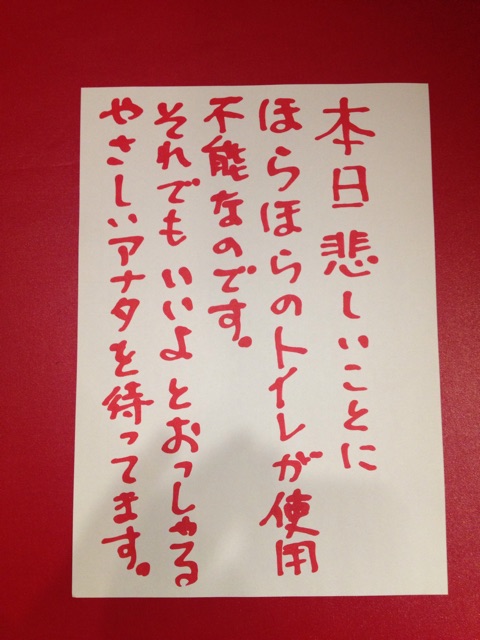 本日 悲しいことに
ほらほらのトイレが使用
不能なのです。
それでもいいよとおっしゃる
やさしいアナタを待ってます。